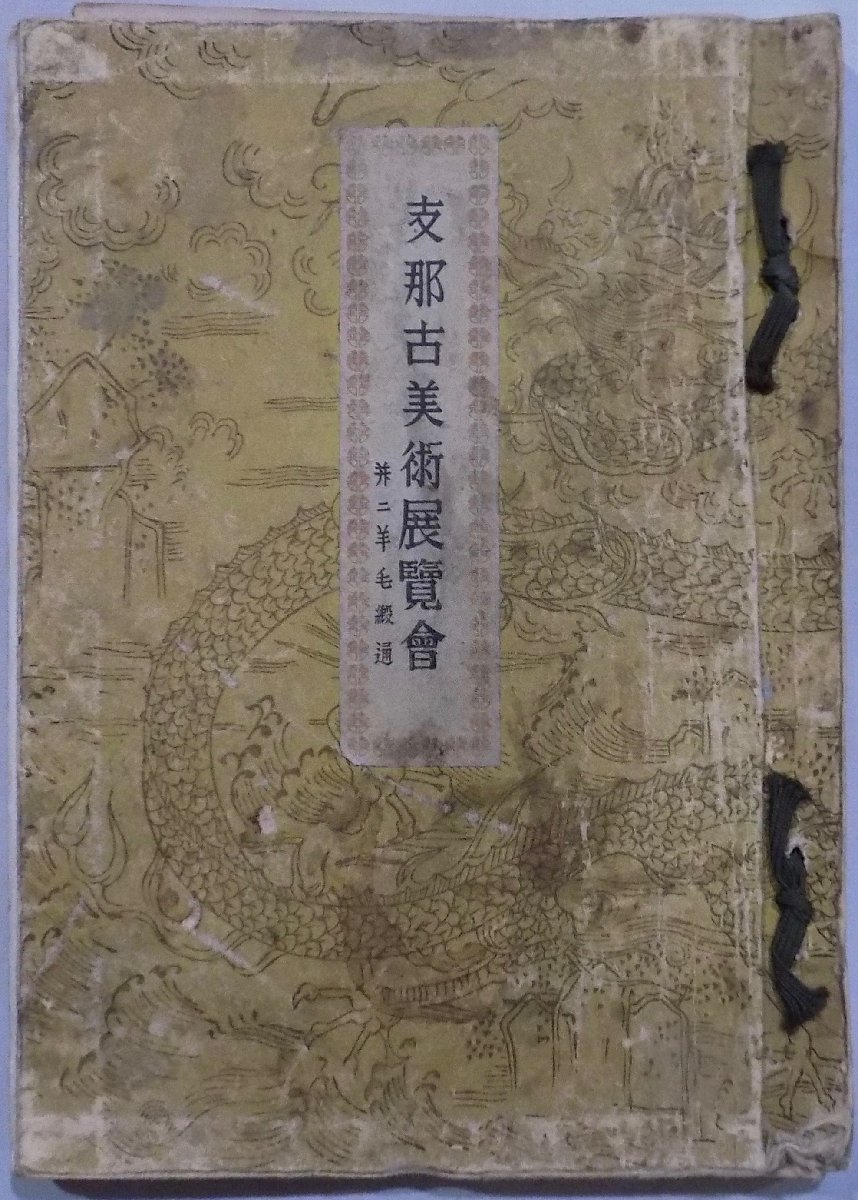 支那古美術展覽會
并ニ羊毛緞通